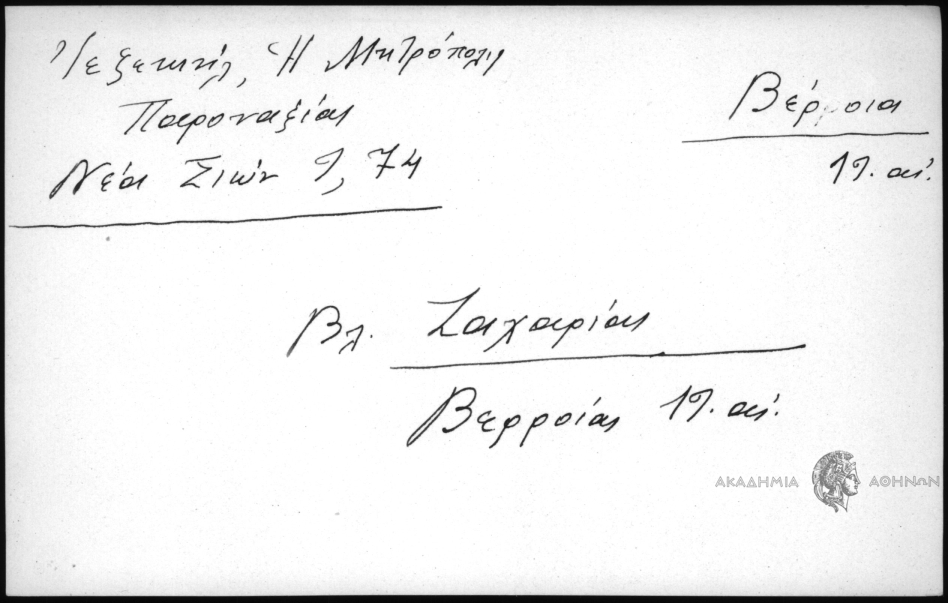 Ἰεζεκιήλ, Ἡ Μητρόπολις
Παροναξίας
Νέα Σιών 9, 74
Βέρροια
19. αἰ.
Βλ. Ζαχαρίας
Βερροίας 19. αἰ.
ΑΚΑΔΗΜΙΑ ΑΘΗΝΩΝ